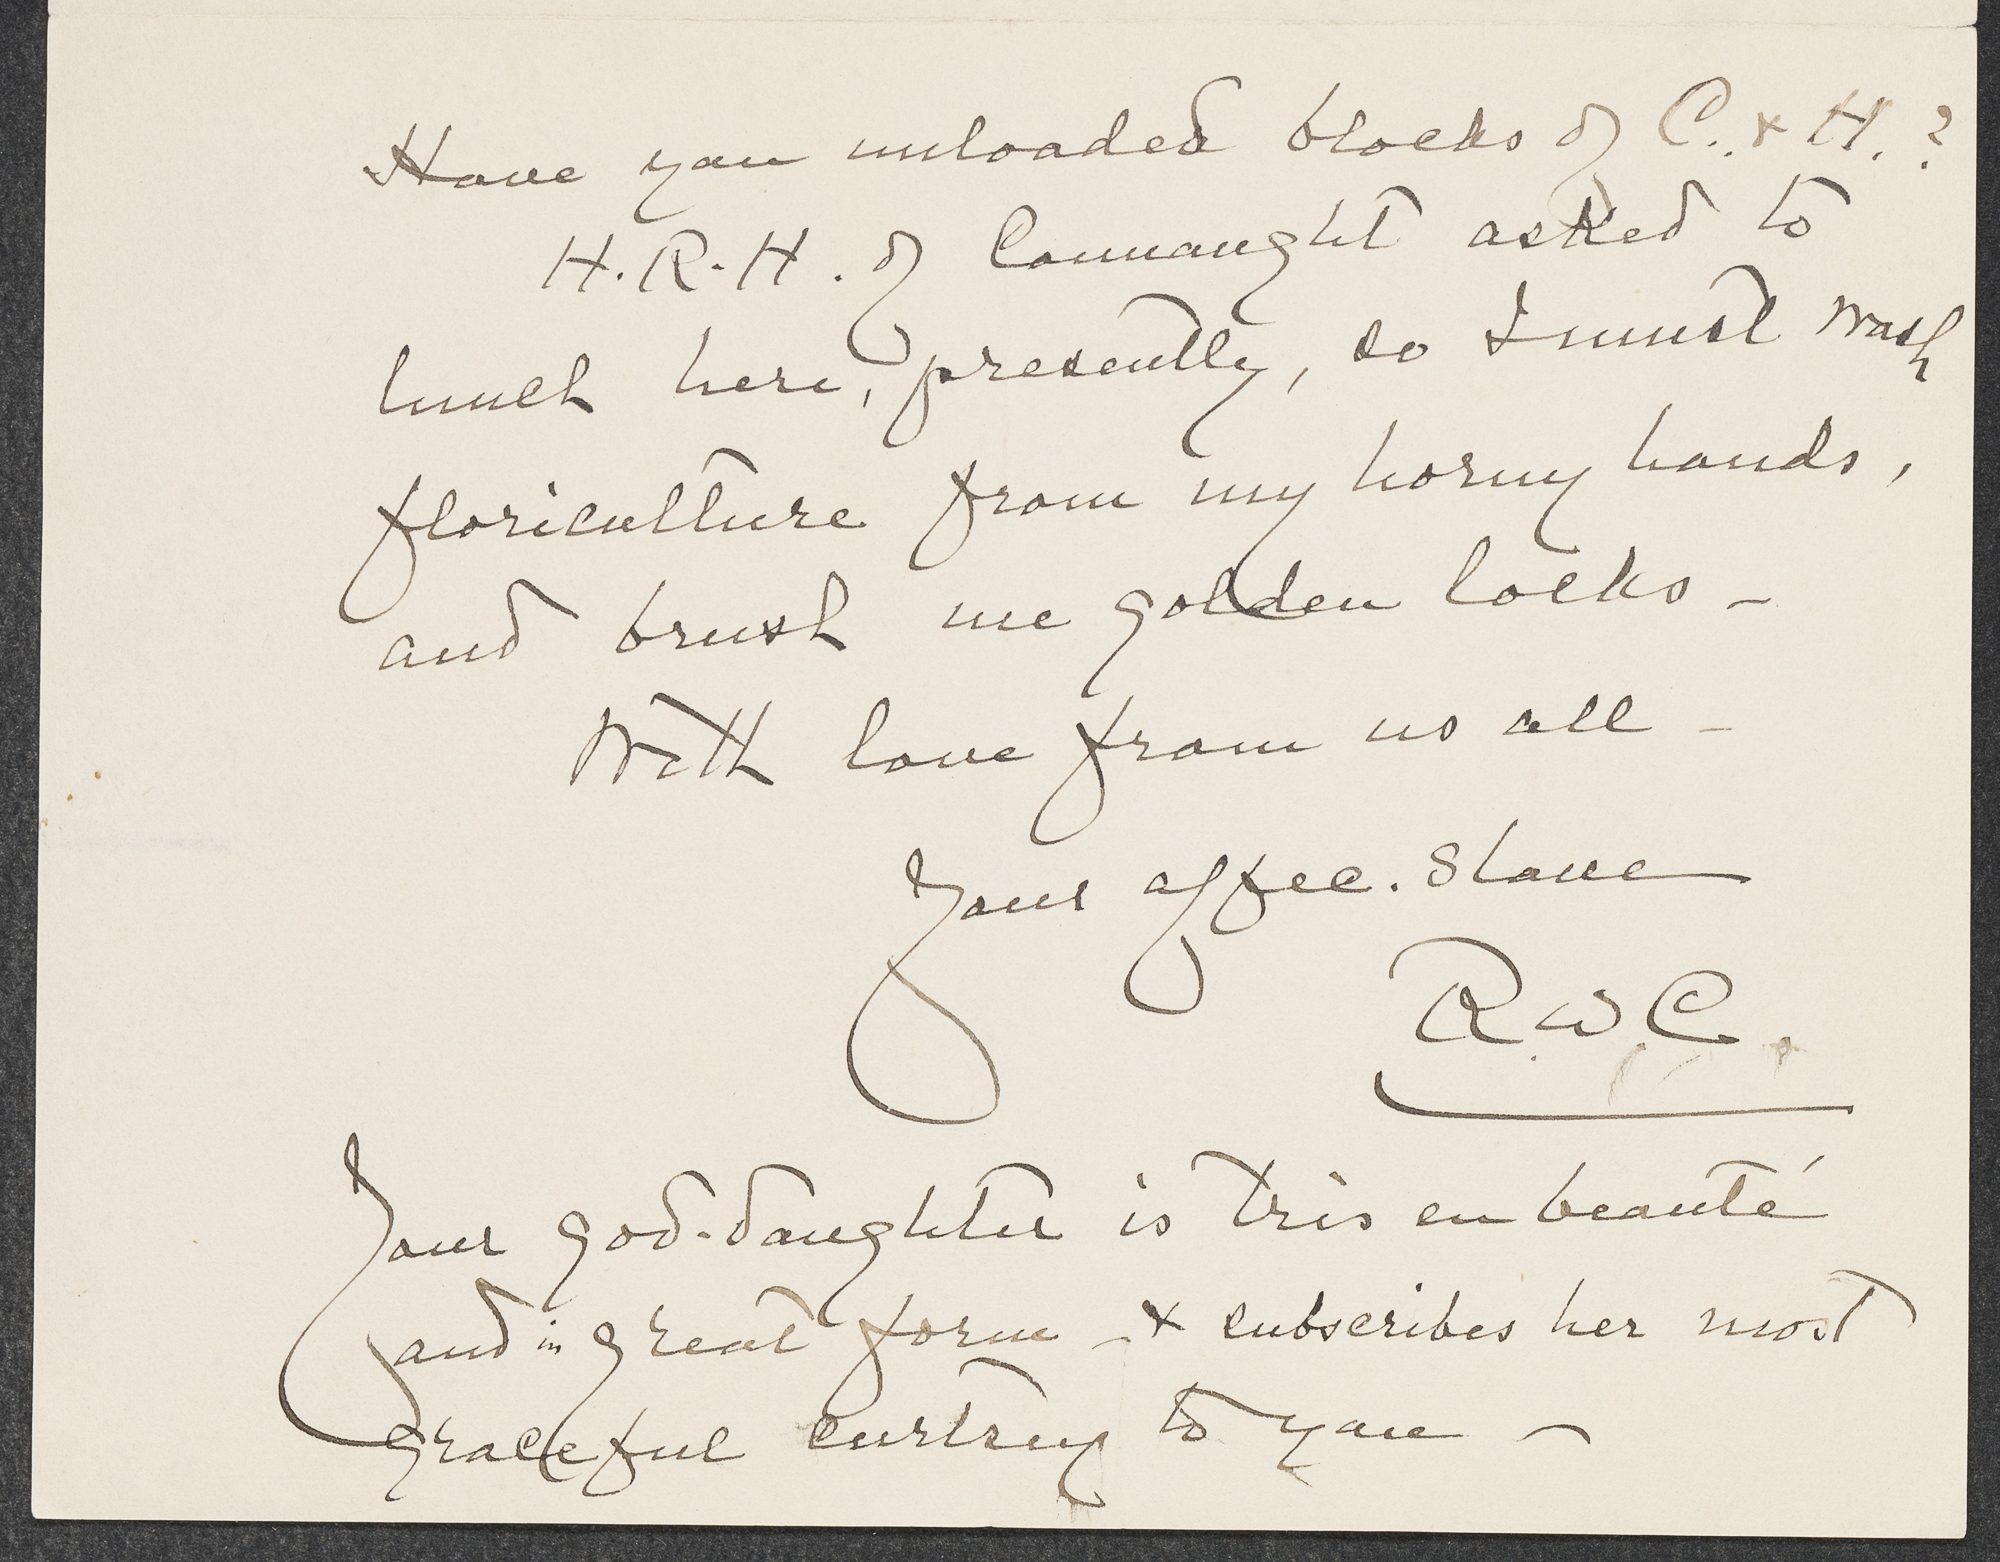 Have you unloaded blocks of C. & H.?
H.R.H. of Connaught asked to
lunch here, presently, so I must wash
floriculture from my horny hands,
and brush me golden locks -
With love from us all -
Your affec. Slave
R.W.C.
Your god-daughter is très en beauté
and in great form - & subscribes her most
graceful curtsey to you -